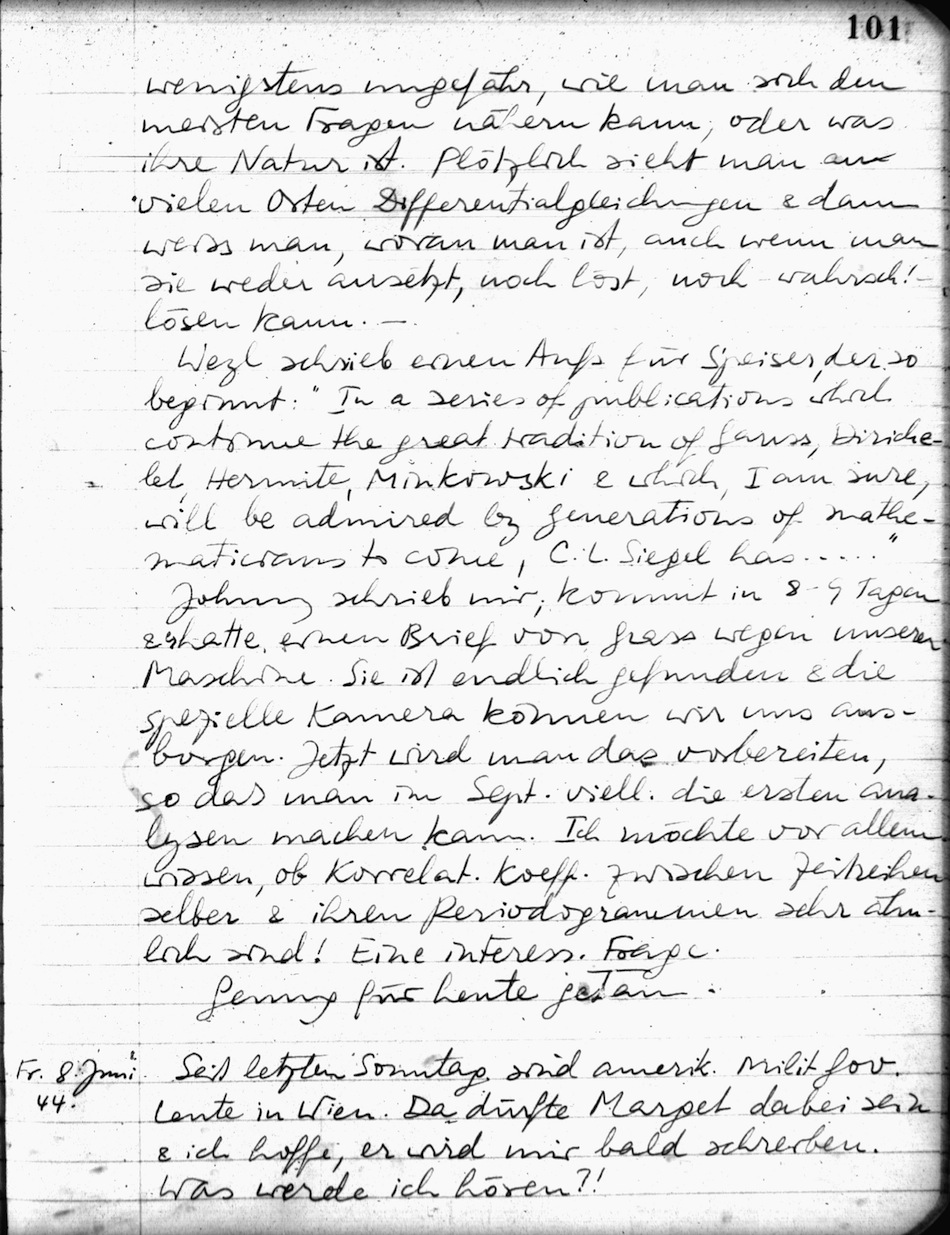 101
wenigstens ungefähr, wie man sich den
meisten Fragen nähern kann, oder was
ihre Natur ist. Plötzlich sieht man an
vielen Orten Differentialgleichungen & dann
weiss man, woran man ist, auch wenn man
sie weder ansetzt, noch löst, noch wahrsch!
lösen kann. —
Weyl schrieb einen Aufs für Speiser, der so
beginnt: "In a series of publications which
continue the great tradition of Gauss, Diriche-
let, Hermite, Minkowski & which, I am sure,
will be admired by generations of mathe-
maticians to come, C. L. Siegel has ....."
Johnny schrieb mir; kommt in 8-9 Tagen
& hatte einen Brief von Grass wegen unserer
Maschine. Sie ist endlich gefunden & die
spezielle Kamera können wir uns aus-
borgen. Jetzt wird man das vorbereiten,
so daß man im Sept. viell. die ersten Ana-
lysen machen kann. Ich möchte vor allem
wissen, ob Korrelat. Koeff. zwischen Zeitreihen
selber & ihren Periodogrammen sehr ähn-
lich sind! Eine interess. Frage.
Genug für heute getan.
Fr. 8. Juni Seit letzten Sonntag sind amerik. Milit Gov.
44. Leute in Wien. Da dürfte Marget dabei sein
& ich hoffe, er wird mir bald schreiben.
Was werde ich hören?!